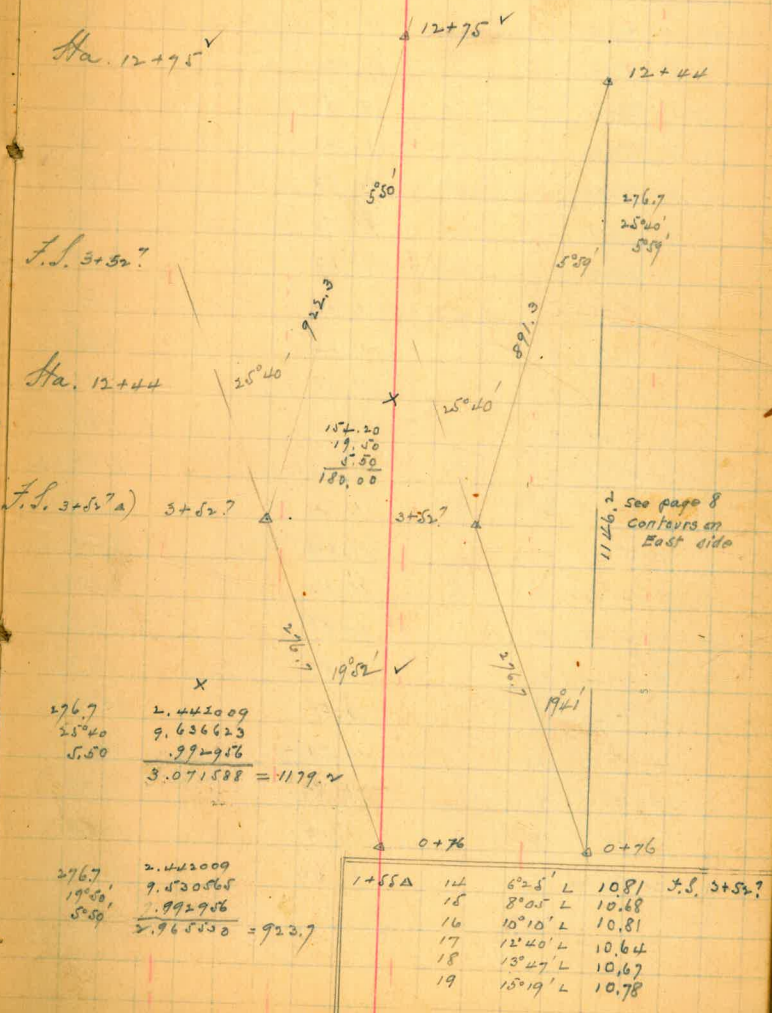 Sta. 12+95 ✓
12+75 ✓
12+44
5°50'
276.7
25°40'
5°59'
5°59'
F.S. 3+52?
922.3
891.3
Sta. 12+44
25°40'
25°40'
X
154.20
19.50
5.50
180.00
F.S. 3+52? a)
3+52?
3+52?
1146.2
See page 8
Contours on
East side
276.7
19°52' ✓
276.7
19°41'
X
276.7 2.442009
25°40 9.636623
5.50 .992956
3.071588 = 1179.2
0+76
0+76
276.7 2.442009
19°50' 9.530565
5°50' .992956
2.965530 = 923.7
1+55 Δ 14 6°25' L 10.81 F.S. 3+52?
15 8°05' L 10.68
16 10°10' L 10.81
17 12°40' L 10.64
18 13°47' L 10.67
19 15°19' L 10.78